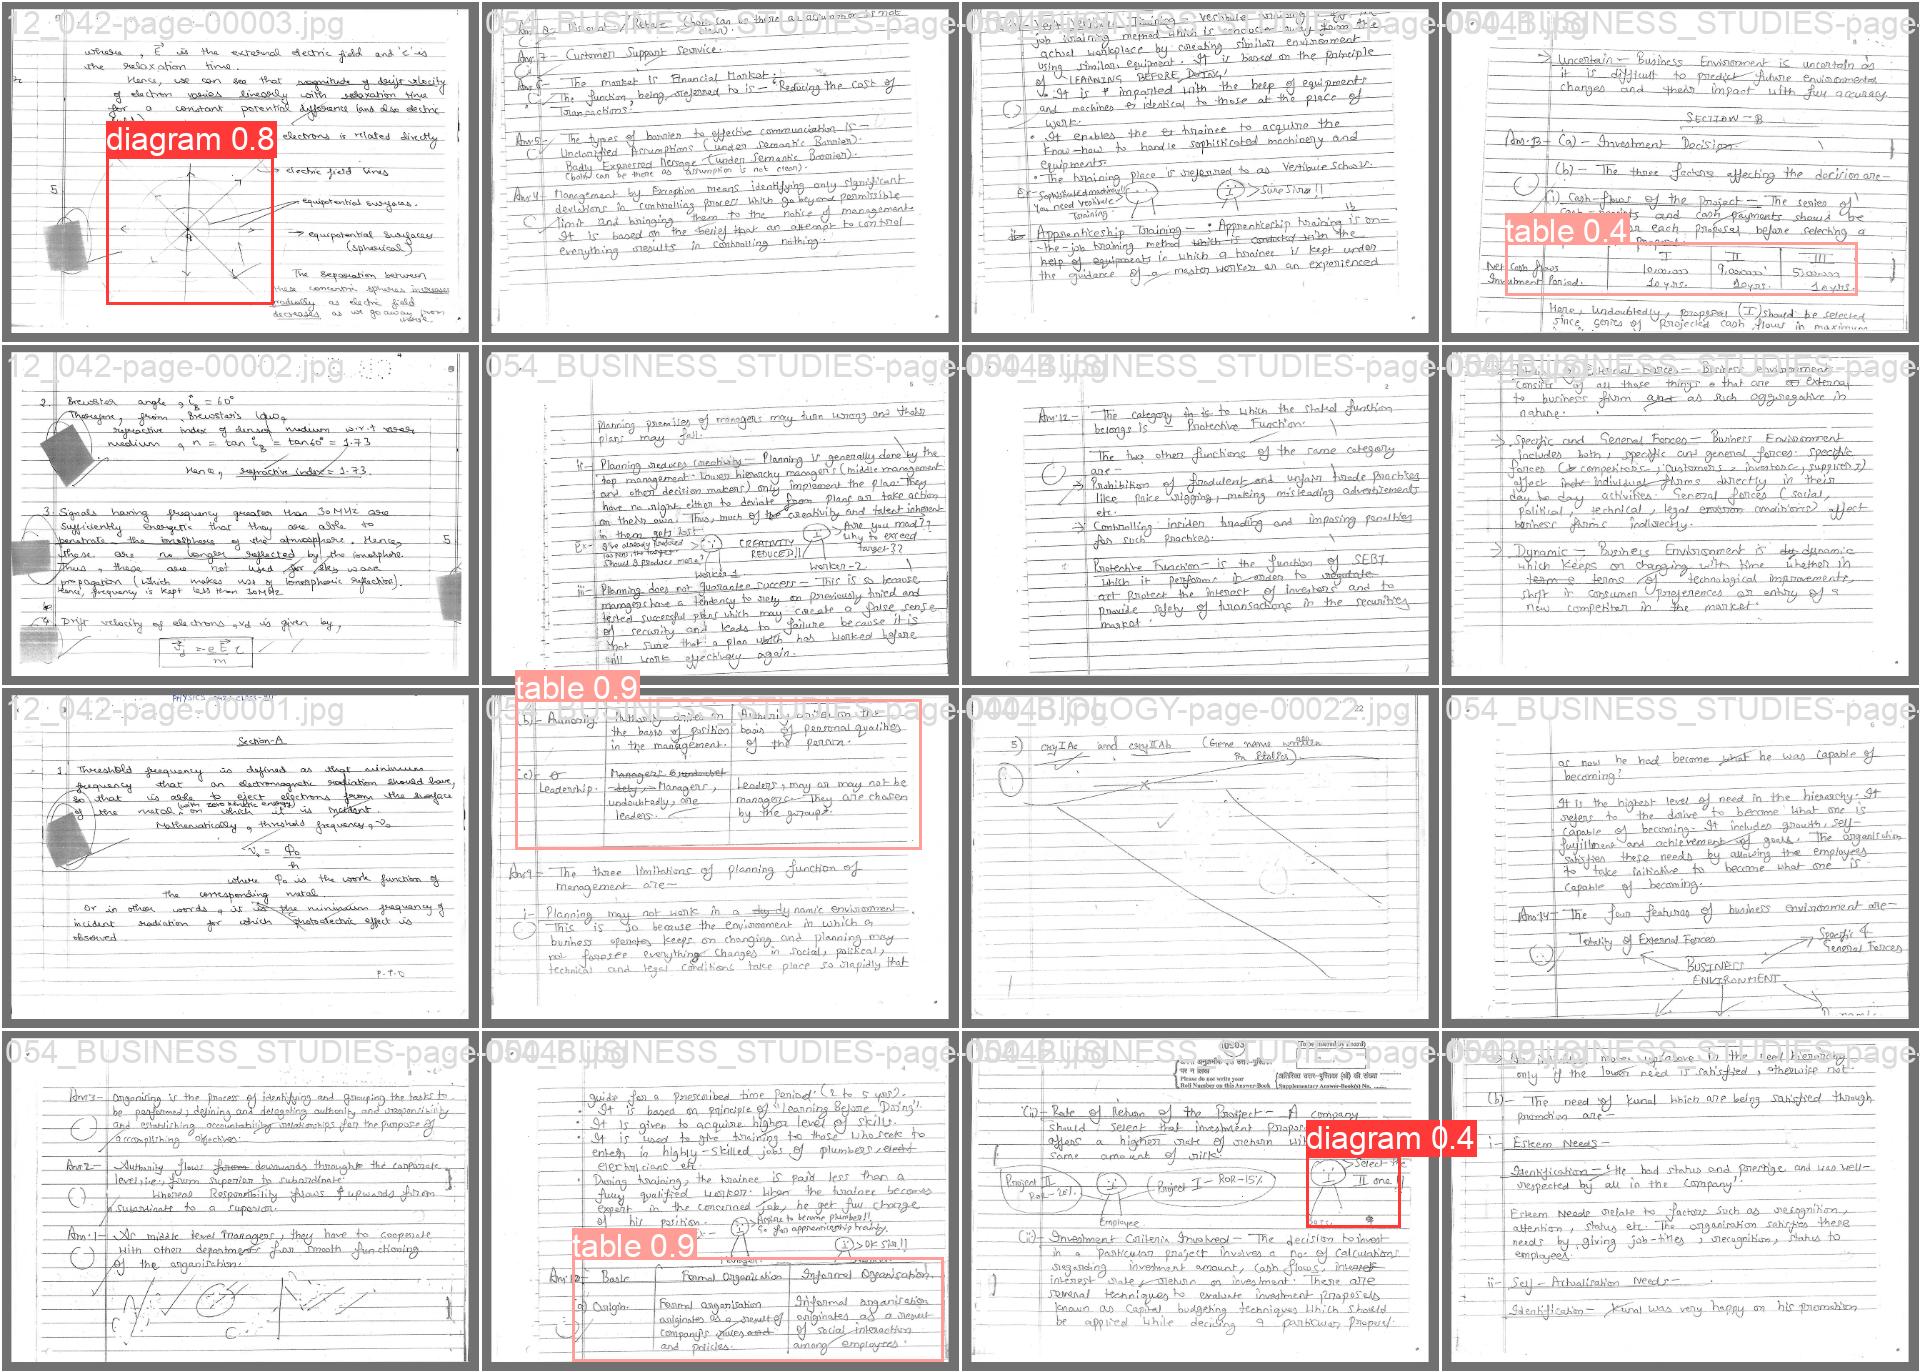 12_042-page-00003.jpg
where, E is the external electric field and 'c' is
the relaxation time.
Hence, we can see that magnitude of drift velocity
of electron varies linearly with relaxation time
for a constant potential difference (and also electric
diagram 0.8
electrons is related directly
electric field lines
equipotential surfaces.
equipotential surfaces
(spherical)
The separation between
these concentric spheres increases
gradually as electric field
decreases as we go away from
5
054_BUSINESS_STUDIES-page-
Ans.7- Customer Support Service.
Ans.6- The market is Financial Market.
The function, being referred to is - "Reducing the Cost of
Transactions.
Ans.5- The types of barrier to effective communication is-
Unclarified Assumptions (under Semantic Barrier).
Badly Expressed Message (under Semantic Barrier).
Ans.4- Management by Exception means identifying only significant
deviations in controlling process which go beyond permissible
limit and bringing them to the notice of management.
It is based on the belief that an attempt to control
everything results in controlling nothing.
job training method which is conducted away from the
actual workplace by creating similar environment
using similar equipment. It is based on the principle
of LEARNING BEFORE DOING.
It is imparted with the help of equipments
and machines identical to those at the place of
work.
It enables the trainee to acquire the
know-how to handle sophisticated machinery and
equipments.
The training place is referred to as Vestibule School.
You need vestibule
training.
Sure Sir!!
Apprenticeship Training - Apprenticeship training is on-
the-job training method which is conducted with the
help of equipments in which a trainee is kept under
the guidance of a master worker or an experienced
Uncertain - Business Environment is uncertain as
it is difficult to predict future environmental
changes and their impact with full accuracy.
SECTION-B
Ans.13- (a)- Investment Decision.
(b)- The three factors affecting the decision are-
(i) Cash-flows of the Project - The series of
and cash payments should be
each proposal before selecting a
table 0.4
I II III
Net Cash flows
Investment Period. 10 yrs. 10 yrs. 10 yrs.
Here, undoubtedly, proposal (I) should be selected
since series of projected cash flows in maximum
12_042-page-00002.jpg
2. Brewster angle, iB = 60°
Therefore, from Brewster's law,
refractive index of denser medium w.r.t rarer
medium, n = tan iB = tan60° = 1.73
Hence, refractive index = 1.73.
3. Signals having frequency greater than 30MHz are
sufficiently energetic that they are able to
penetrate the ionosphere of the atmosphere. Hence,
these are no longer reflected by the ionosphere.
Thus, these are not used for sky wave
propagation (which makes use of ionospheric reflection).
Hence, frequency is kept less than 30MHz
4. Drift velocity of electrons, vd is given by,
054_BUSINESS_STUDIES-page-
Planning premises of managers may turn wrong and their
plans may fail.
ii- Planning reduces creativity - Planning is generally done by the
top management. Lower hierarchy mangers (middle management
and other decision makers) only implement the plan. They
have no right either to deviate from plans or take action
on their own. Thus, much of the creativity and talent inherent
in them gets lost
CREATIVITY
REDUCED!!
Are you mad??
Why to exceed
target??
Worker-1
Worker-2
iii- Planning does not guarantee success - This is so because
managers have a tendency to rely on previously tried and
tested successful plans which may create a false sense
of security and leads to failure because it is
not sure that a plan which has worked before
will work effectively again.
Ans.12- The category in is to which the stated function
belongs is - Protective Function.
The two other functions of the same category
are-
Prohibition of fradulent and unfair trade practices
like price rigging, making misleading advertisements
etc.
Controlling insider trading and imposing penalties
for such practices.
Protective Function - is the function of SEBI
which it performs in order to regulate
act protect the interest of investors and to
provide safety of transactions in the securities
market.
External Forces - Business environment
consists of all those things that are external
to business firm and as such aggregative in
nature.
Specific and General Forces - Business Environment
includes both, specific and general forces. Specific
forces (competitors, customers, investors, suppliers)
affect individual firms directly in their
day to day activities. General forces (social,
political, technical, legal conditions) affect
business firms indirectly.
Dynamic - Business Environment is dynamic
which keeps on changing with time whether in
terms of technological improvements,
shift in consumer preferences or entry of a
new competitor in the market.
12_042-page-00001.jpg
Section-A
1. Threshold frequency is defined as that minimum
frequency that an electromagnetic radiation should have,
so that is able to eject electrons from the surface
(with zero kinetic energy)
of the metal on which it is incident.
Mathematically, threshold frequency, ν₀
where φ₀ is the work function of
the corresponding metal
Or in other words, it is the minimum frequency of
incident radiation for which photoelectric effect is
observed.
P.T.O
table 0.9
(b)- Authority Authority arises on the basis of position in the management. Authority arises on the basis of personal qualities of the person.
(c)- Leadership. Managers, undoubtedly, are leaders. Leaders, may or may not be managers. They are chosen by the groups.
Ans.9- The three limitations of planning function of
management are-
i- Planning may not work in a dynamic environment.
This is so because the environment in which a
business operates keeps on changing and planning may
not foresee everything. Changes in social, political,
technical and legal conditions take place so rapidly that
BIOLOGY-page-00022.jpg
22
5) cryIAc and cryIIAb (Gene name written
in Italics)
054_BUSINESS_STUDIES-page-
as now he had become what he was capable of
becoming.
It is the highest level of need in the hierarchy. It
refers to the drive to become what one is
capable of becoming. It includes growth, self-
fulfillment and achievement of goals. The organisation
satisfies these needs by allowing the employees
to take initiative to become what one is
capable of becoming.
Ans.14- The four features of business environment are-
Totality of External Forces
Specific &
General Forces
BUSINESS
ENVIRONMENT
054_BUSINESS_STUDIES-page-
Ans.3- Organising is the process of identifying and grouping the tasks to
be performed, defining and delegating authority and responsibility
and establishing accountability relationships for the purpose of
accomplishing objectives.
Ans.2- Authority flows from downwards through the corporate
level i.e. from superior to subordinate.
Whereas Responsibility flows upwards from
subordinate to a superior.
Ans.1- As middle level Managers, they have to cooperate
with other departments for smooth functioning
of the organisation.
guide for a prescribed time period. (2 to 5 years).
It is based on principle of "Learning Before Doing".
It is given to acquire higher level of skills.
It is used to give training to those who seek to
enter in highly-skilled jobs of plumbers,
electricians etc.
During training, the trainee is paid less than a
fully qualified worker. When the trainee becomes
expert in the concerned job, he get full charge
of his position.
OK Sir!!
table 0.9
Ans.10- Basis Formal Organisation Informal Organisation.
(a) Origin. Formal organisation originates as a result of company's rules and policies. Informal organisation originates as a result of social interaction among employees.
Please do not write your
Roll Number on this Answer-Book
Supplementary Answer-Book(s) No.
(ii)- Rate of Return of the Project - A company
should select that investment
offers a higher rate of return
same amount of risk.
diagram 0.4
Project II
ROR-20%
Project I - ROR-15%
Select the
II one
Employee
(iii)- Investment Criteria Involved - The decision to invest
in a particular project involves a no. of calculations
regarding investment amount, cash flows,
interest rate, return on investment. There are
several techniques to evaluate investment proposals
known as Capital budgeting techniques which should
be applied while deciding a particular proposal.
only if the lower need is satisfied, otherwise not.
(b)- The need of Kunal which are being satisfied through
promotion are-
i- Esteem Needs-
Identification - "He had status and prestige and was well-
respected by all in the Company".
Esteem Needs relate to factors such as recognition,
attention, status etc. The organisation satisfies these
needs by giving job-titles, recognition, status to
employees.
ii- Self-Actualisation Needs-
Identification - Kunal was very happy on his promotion